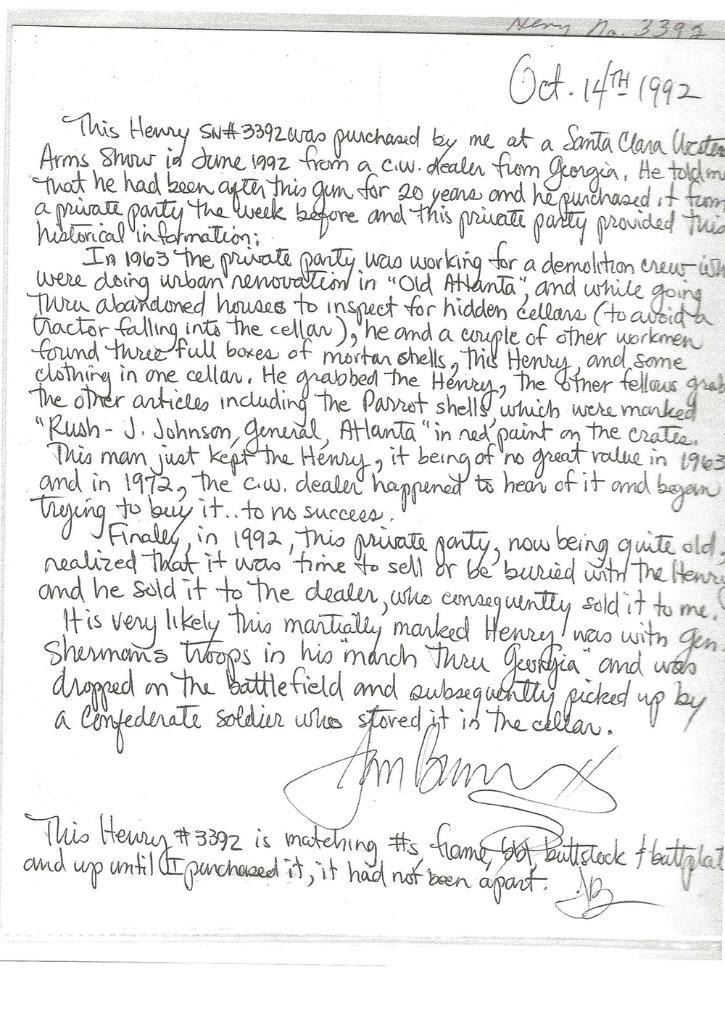 Henry No. 3392
Oct. 14TH 1992
This Henry SN# 3392 was purchased by me at a Santa Clara
Arms Show in June 1992 from a C.W. dealer from Georgia. He told m
that he had been after this gun for 20 years and he purchased it from
a private party the week before and this private party provided this
historical information:
In 1963 the private party was working for a demolition crew
were doing urban renovation in "Old Atlanta", and while going
thru abandoned houses to inspect for hidden cellars (to avoid a
tractor falling into the cellar), he and a couple of other workmen
found three full boxes of mortar shells, this Henry, and some
clothing in one cellar. He grabbed the Henry, the other fellows grab
the other articles including the Parrot shells, which were marked
"Rush - J. Johnson, General, Atlanta" in red paint on the crates.
This man just kept the Henry, it being of no great value in 1963
and in 1972, the C.W. dealer happened to hear of it and began
trying to buy it.. to no success.
Finaley, in 1992, this private party, now being quite old,
realized that it was time to sell or be buried with the Henry
and he sold it to the dealer, who consequently sold it to me.
It is very likely this martially marked Henry was with Gen.
Sherman's troops in his "march thru Georgia" and was
dropped on the battlefield and subsequently picked up by
a Confederate soldier who stored it in the cellar.
This Henry # 3392 is matching #s, frame, bbl, buttstock & buttplat
and up until I purchased it, it had not been apart. JB